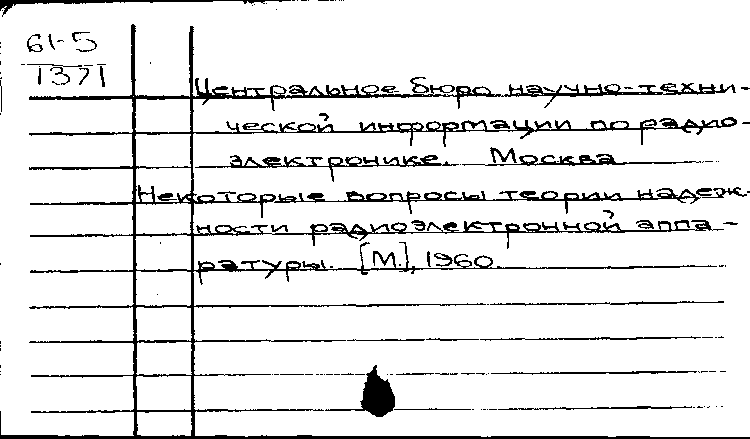 61-5
1371
Центральное бюро научно-техни-
ческой информации по радио-
электронике. Москва
Некоторые вопросы теории надеж-
ности радиоэлектронной аппа-
ратуры. [М], 1960.